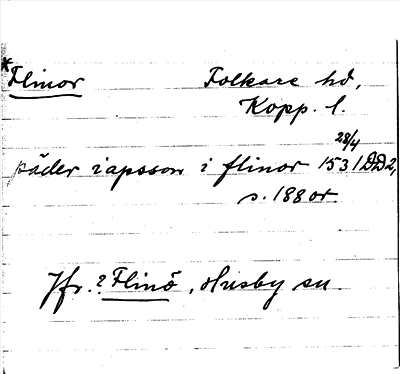 *Flinor Folkare hd,
Kopp. l.
päder iapsson i flinor 28/4 1531 DD2,
s. 188 or.
Jfr. ? Flinö, Husby sn.